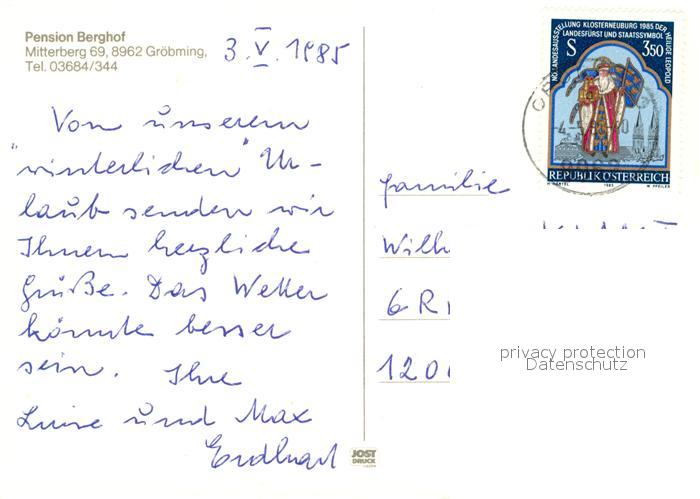 Pension Berghof
Mitterberg 69, 8962 Gröbming,
Tel. 03684/344
3.V.1985
Von unserem
"winterlichen" Ur-
laub senden wir
Ihnen herzliche
Grüße. Das Wetter
könnte besser
sein. Ihre
Luise und Max
NÖ. LANDESAUSSTELLUNG KLOSTERNEUBURG 1985 DER HEILIGE LEOPOLD
LANDESFÜRST UND STAATSSYMBOL
S 3.50
REPUBLIK ÖSTERREICH
1985 W. PFEILER
Familie
Wilh
6 R
120
privacy protection
Datenschutz
JOST
DRUCK